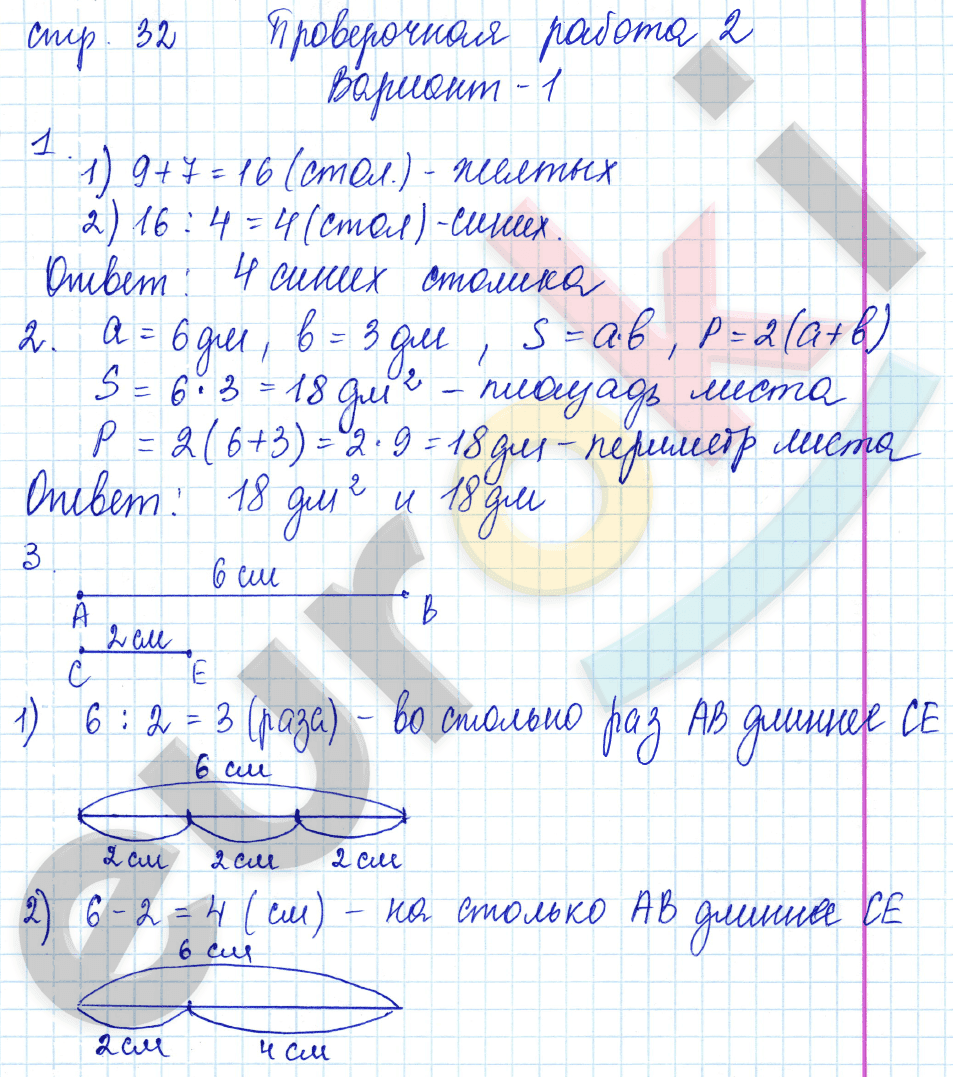 стр. 32 Проверочная работа 2
Вариант - 1
1.
1) 9 + 7 = 16 (стол.) - желтых
2) 16 : 4 = 4 (стол) - синих.
Ответ: 4 синих столика
2. a = 6 дм, в = 3 дм, S = a·в, P = 2(a+в)
S = 6 · 3 = 18 дм² – площадь листа
P = 2(6+3) = 2·9 = 18 дм – периметр листа
Ответ: 18 дм² и 18 дм
3.
6 см
A B
2 см
C E
1) 6 : 2 = 3 (раза) – во столько раз AB длиннее CE
6 см
2 см 2 см 2 см
2) 6 – 2 = 4 (см) – на столько AB длиннее CE
6 см
2 см 4 см
euroki